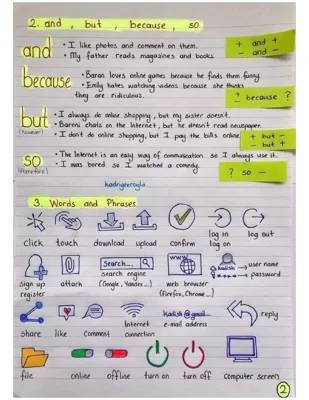 2. and , but , because , so
and
• I like photos and comment on them.
• My father reads magazines and books.
+ and +
- and -
because
• Baran loves online games because he finds them funny.
• Emily hates watching videos because she thinks
they are ridiculous.
because ?
but
(however)
• I always do online shopping, but my sister doesn't.
• Baran chats on the Internet, but he doesn't read newspaper.
• I don't do online shopping, but I pay the bills online.
+ but -
- but +
so
(therefore)
• The Internet is an easy way of communication so I always use it.
• I was bored so I watched a comedy.
? so -
3. Words and Phrases
click
touch
download
upload
confirm
log in
log on
log out
sign up
register
attach
Search...
search engine
(Google, Yandex ...)
WWW.
web browser
(Firefox, Chrome...)
user name
password
share
like
comment
Internet
connection
e-mail address
reply
file
online
offline
turn on
turn off
computer screen
2